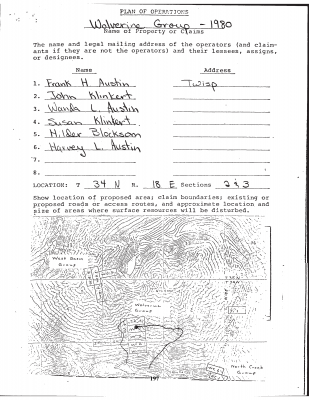 PLAN OF OPERATIONS
Wolverine Group - 1980
Name of Property or Claims
The name and legal mailing address of the operators (and claim-
ants if they are not the operators) and their lessees, assigns,
or designees.
Name Address
1. Frank H Austin Twisp
2. John Klinkert
3. Wanda L. Austin
4. Susan Klinkert
5. Milder Blocksom
6. Harvey L. Austin
7.
8.
LOCATION: T 34 N R. 18 E Sections 2 & 3
Show location of proposed area; claim boundaries; existing or
proposed roads or access routes, and approximate location and
size of areas where surface resources will be disturbed.
West Basin
Group
Wolverine
Group
North Creek
Group
197